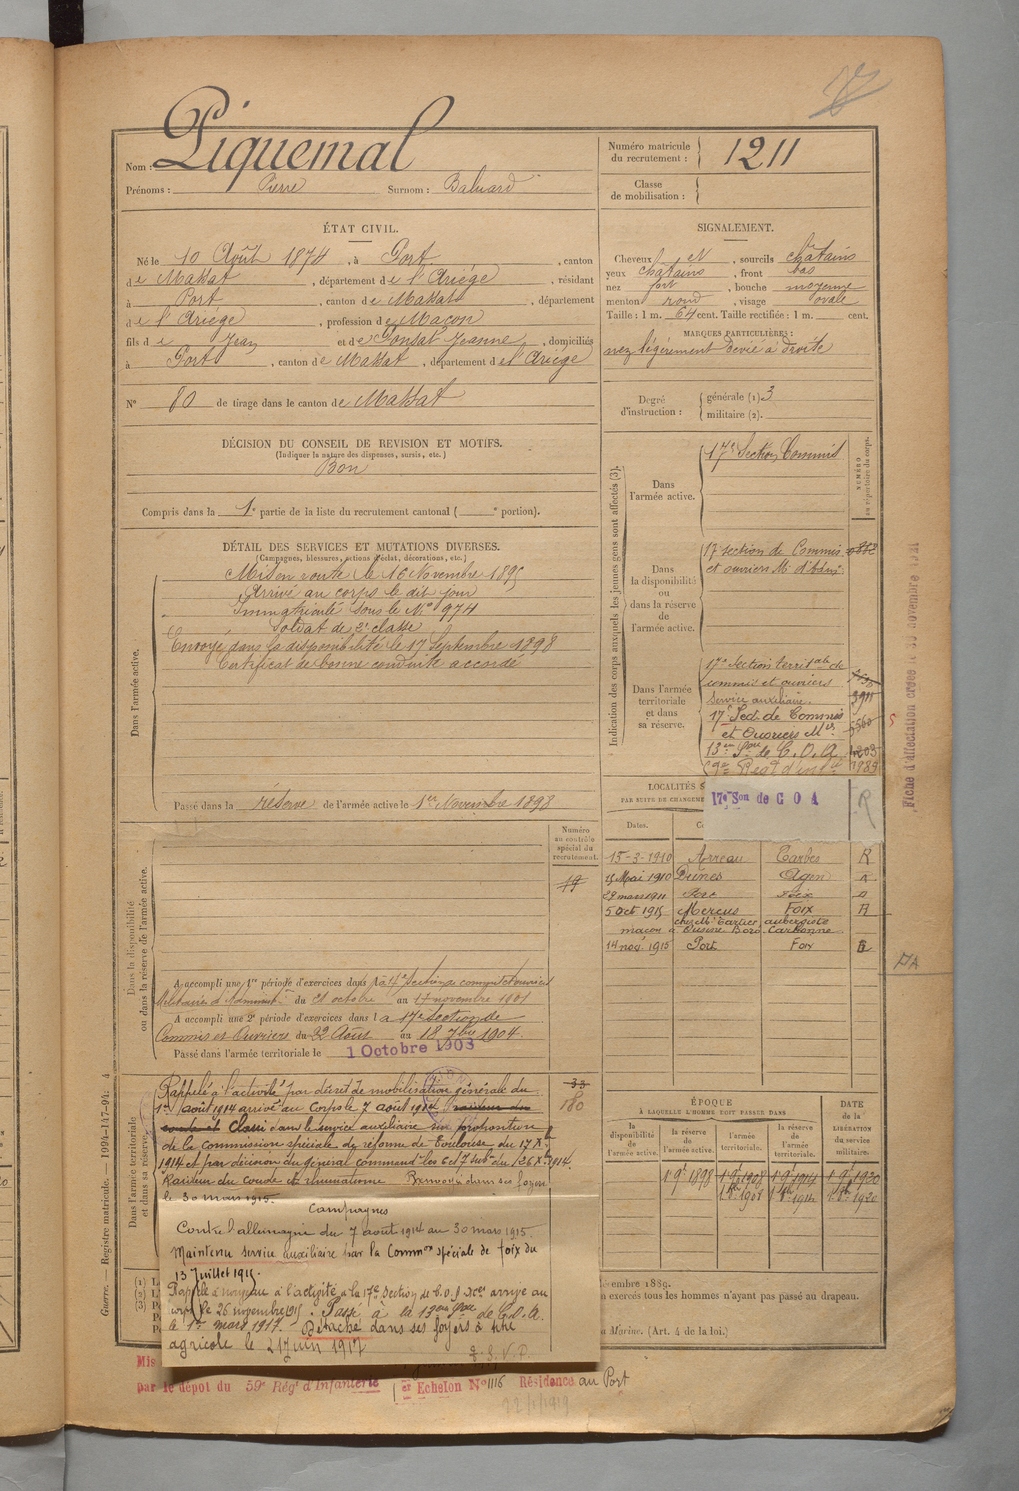 Nom : Piquemal
Prénoms : Pierre Surnom : Baluard
Numéro matricule du recrutement : 1211
Classe de mobilisation :
ÉTAT CIVIL.
Né le 10 Août 1874, à Port, canton
de Massat, département de l'Ariège, résidant
à Port, canton de Massat, département
de l'Ariège, profession de Maçon
fils de Jean et de Ponsat Jeanne, domiciliés
à Port, canton de Massat, département de l'Ariège
N° 80 de tirage dans le canton de Massat
DÉCISION DU CONSEIL DE REVISION ET MOTIFS.
(Indiquer la nature des dispenses, sursis, etc.)
Bon
Compris dans la 1e partie de la liste du recrutement cantonal ( e portion).
SIGNALEMENT.
Cheveux et , sourcils châtains
yeux châtains , front bas
nez fort , bouche moyenne
menton rond , visage ovale
Taille : 1 m. 64 cent. Taille rectifiée : 1 m. cent.
MARQUES PARTICULIÈRES :
nez légèrement dévié à droite
Degré d'instruction : générale (1) 3
militaire (2).
DÉTAIL DES SERVICES ET MUTATIONS DIVERSES.
(Campagnes, blessures, actions d'éclat, décorations, etc.)
Dans l'armée active.
Mis en route le 16 Novembre 1895
Arrivé au corps le dit jour
Immatriculé sous le N° 974
Soldat de 2e classe
Envoyé dans la disponibilité le 17 Septembre 1898
Certificat de bonne conduite accordé
Passé dans la réserve de l'armée active le 1er Novembre 1898
Indication des corps auxquels les jeunes gens sont affectés (3).
NUMÉRO au répertoire du corps.
Dans l'armée active.
17e Section Commis
Dans la disponibilité ou dans la réserve de l'armée active.
17 section de Commis
et ouvriers M. d'Adm.
Dans l'armée territoriale et dans sa réserve.
17e Section territale de
commis et ouvriers
service auxiliaire.
3911
17e Sect. de Commis
et Ouvriers Mres
13e Son de C.O.A.
17e Son de C O A
R
Fiche d'affectation créée le novembre 1921
LOCALITÉS S
PAR SUITE DE CHANGEME
Dates.
15-3-1910 Arreau Tarbes R
15 Mai 1910 Agen
29 mars 1911 Port Foix
5 Oct 1915 Mercus Foix R
14 nov. 1915 Port Foix
Dans la disponibilité ou dans la réserve de l'armée active.
Numéro au contrôle spécial du recrutement.
19
A accompli une 1re période d'exercices dans la 17e Section de commis et ouvriers
Militaires d'Administon du 21 octobre au 17 novembre 1901
A accompli une 2e période d'exercices dans la 17e section de
Commis et Ouvriers du 22 Août au 18 7bre 1904.
Passé dans l'armée territoriale le 1 Octobre 1903
Dans l'armée territoriale et dans sa réserve.
33
180
Rappelé à l'activité par décret de mobilisation générale du
1er août 1914 arrivé au Corps le 7 août 1914
Classé dans le service auxiliaire sur proposition
de la commission spéciale de réforme de Toulouse du 17 Xbre
1914 et par décision du général command les 6 et 7 subns du 26 Xbre 1914.
Raideur du coude et rhumatisme Renvoyé dans ses foyers
le 30 mars 1915.
Campagnes
Contre l'allemagne du 7 août 1914 au 30 mars 1915.
Maintenu service auxiliaire par la Common spéciale de Foix du
13 Juillet 1915.
Rappelé à nouveau à l'activité à la 17e Section de C.O.A. arrivé au
corps le 26 novembre 1915. Passé à la 13eme Son de C.O.A.
le 1er mars 1917. Détaché dans ses foyers à titre
agricole le 21 juin 1917
T. S. V. P.
ÉPOQUE
À LAQUELLE L'HOMME DOIT PASSER DANS
la disponibilité de l'armée active.
la réserve de l'armée active.
l'armée territoriale.
la réserve de l'armée territoriale.
DATE de la LIBÉRATION du service militaire.
1 9bre 1898 1 9bre 1908 1 9bre 1914 1 9bre 1920
1 8bre 1908 1 8bre 1914 1 8bre 1920
écembre 1889.
n exercés tous les hommes n'ayant pas passé au drapeau.
a Marine. (Art. 4 de la loi.)
Guerre. — Registre matricule. — 1994-147-94.
Mis
par le dépot du 59e Régt d'Infanterie 1er Echelon N° 1116 Résidence au Port
22/1/1919